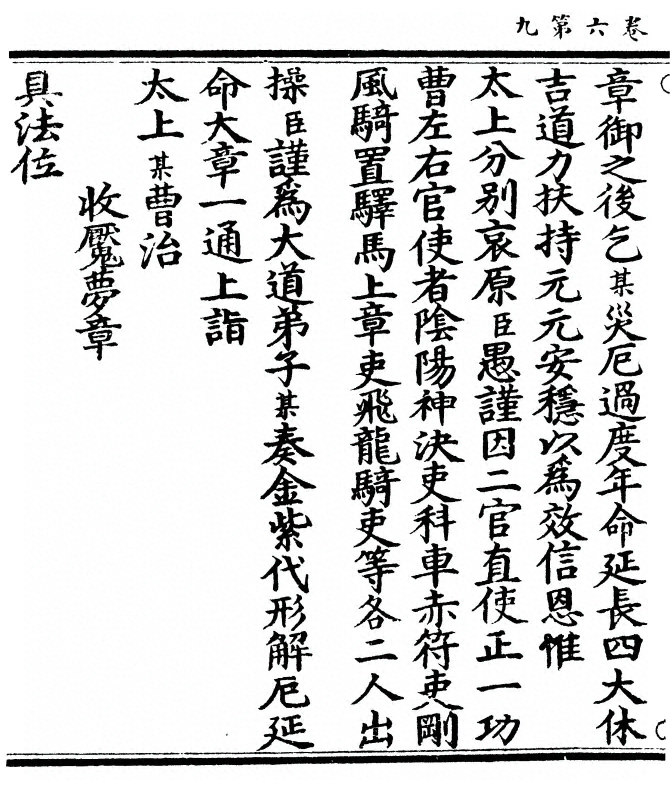 卷六第九
章御之後乞某災厄過度年命延長四大休
吉道力扶持元元安穩以為效信恩惟
太上分别哀原臣愚謹因二官直使正一功
曹左右官使者陰陽神決吏科車赤符吏剛
風騎置驛馬上章吏飛龍騎吏等各二人出
操臣謹為大道弟子某奏金紫代形解厄延
命大章一通上詣
太上某曹治
收魘夢章
具法位